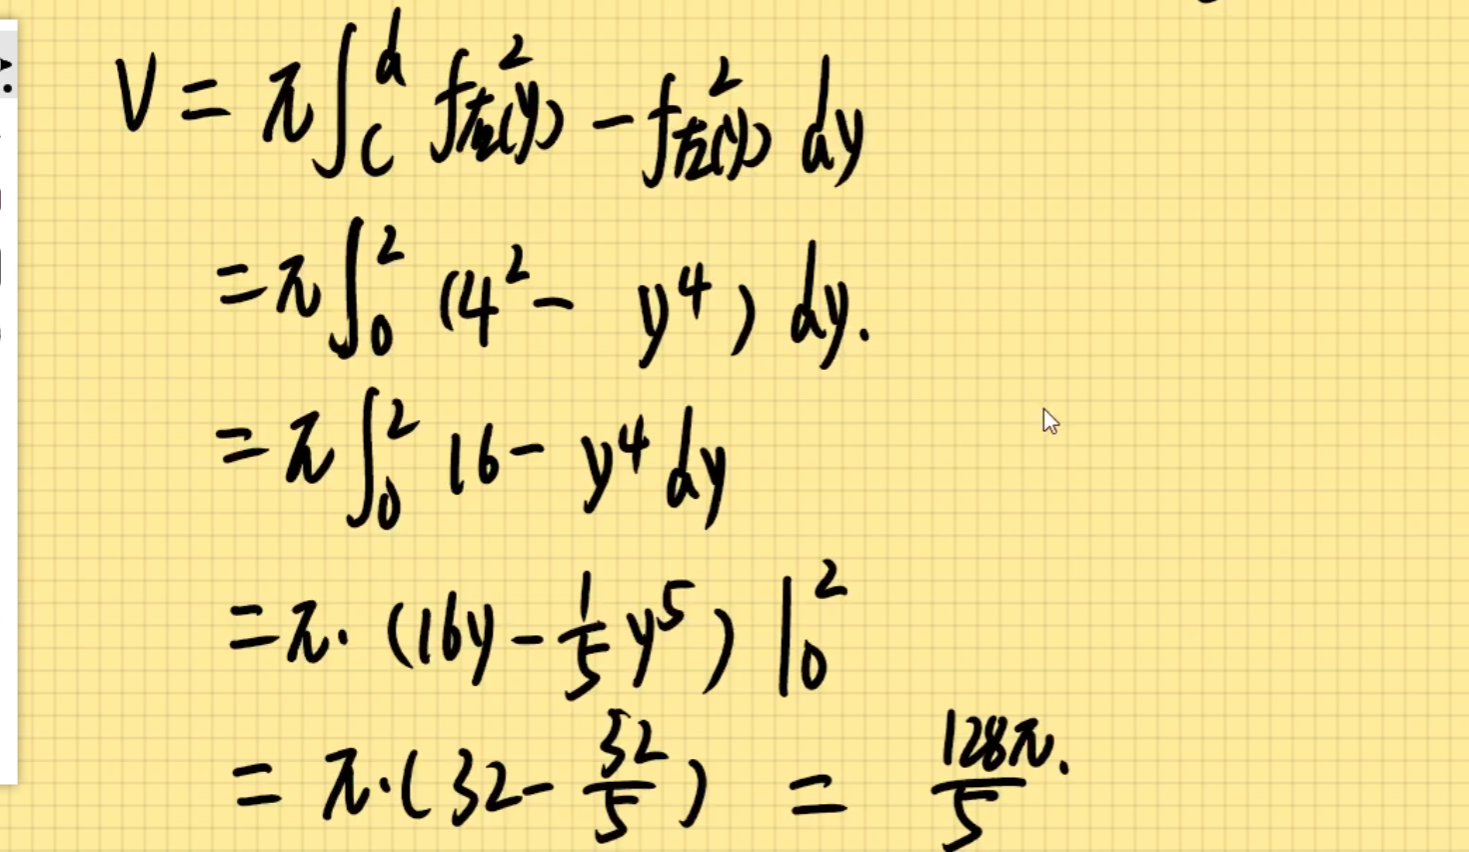 V = π∫_c^d f左²(y) - f左²(y) dy
= π∫_0^2 (4² - y⁴) dy.
= π∫_0^2 16 - y⁴ dy
= π· (16y - 1/5 y⁵) |_0^2
= π·(32 - 32/5) = 128π/5.